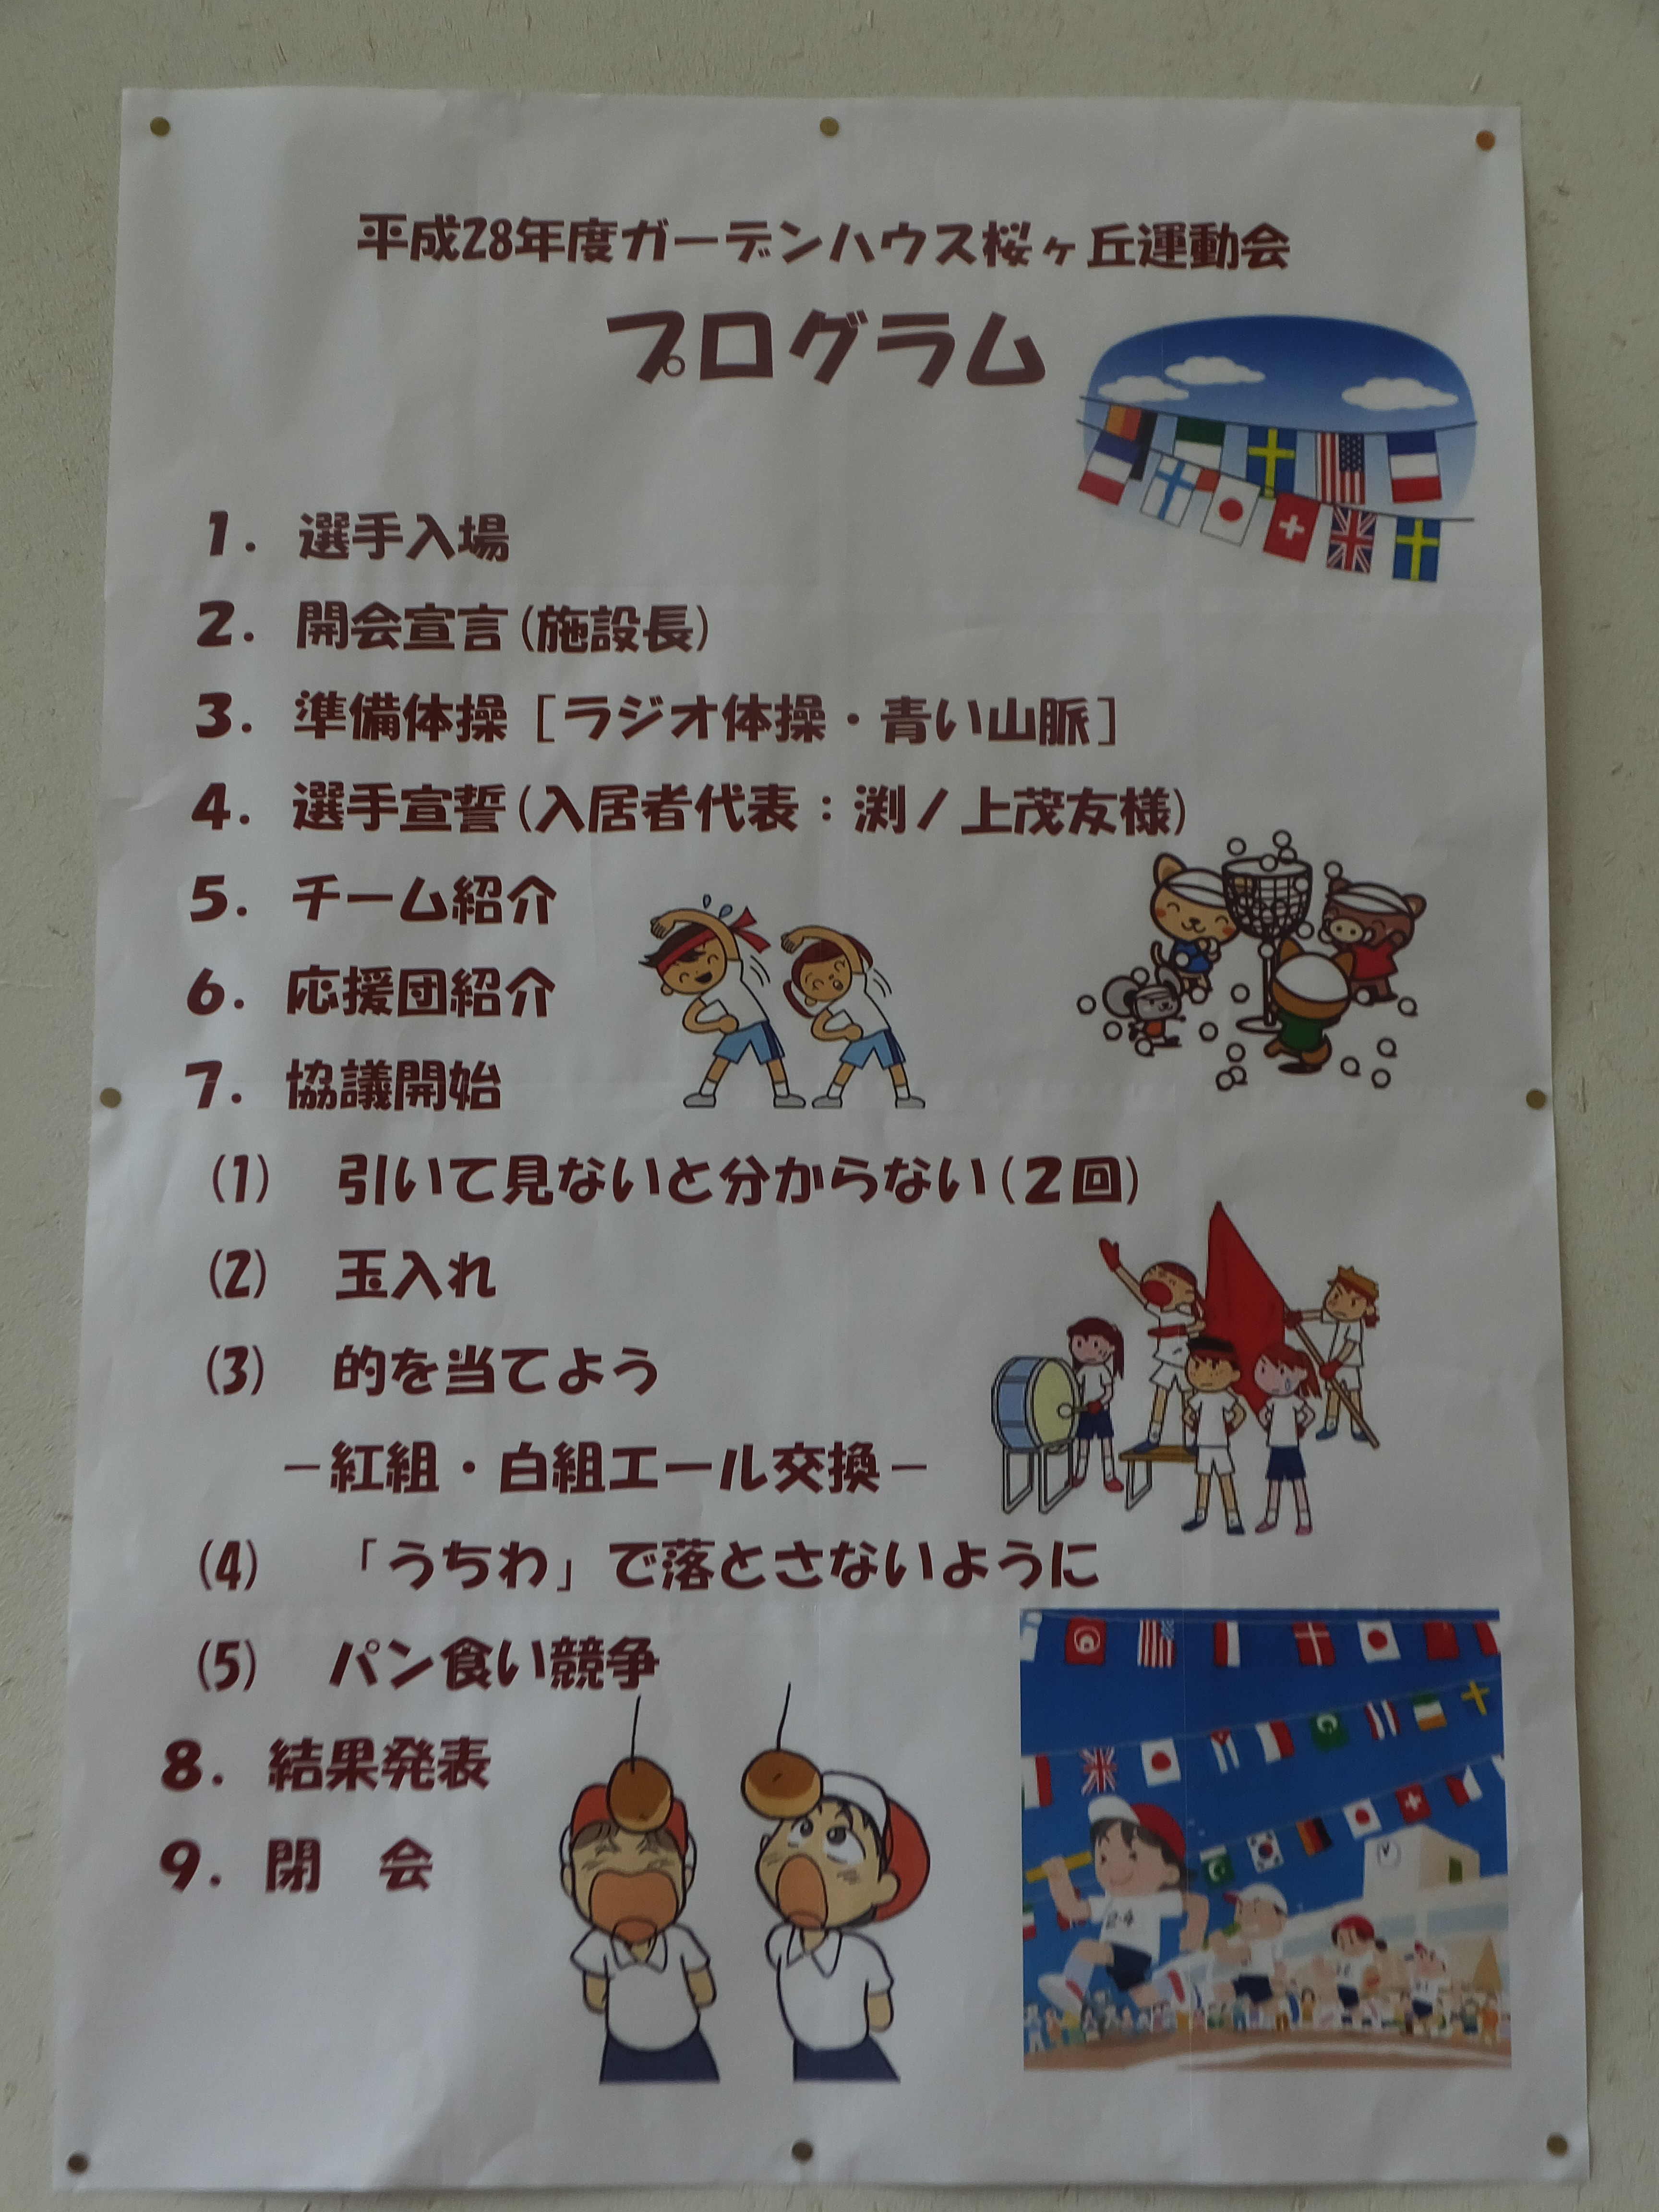 平成28年度ガーデンハウス桜ヶ丘運動会
プログラム
1. 選手入場
2. 開会宣言(施設長)
3. 準備体操[ラジオ体操・青い山脈]
4. 選手宣誓(入居者代表：渕ノ上茂友様)
5. チーム紹介
6. 応援団紹介
7. 協議開始
(1) 引いて見ないと分からない(2回)
(2) 玉入れ
(3) 的を当てよう
－紅組・白組エール交換－
(4) 「うちわ」で落とさないように
(5) パン食い競争
8. 結果発表
9. 閉　会
24